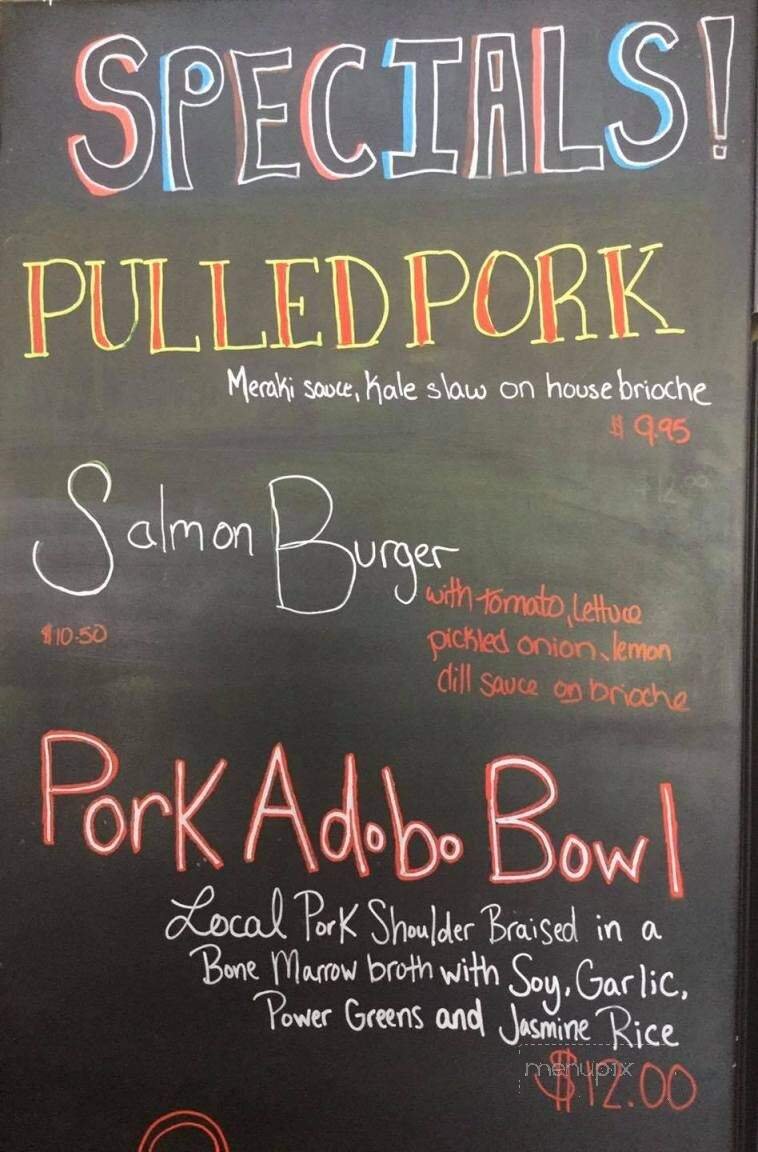 SPECIALS!
PULLED PORK
Meraki sauce, Kale slaw on house brioche
$ 9.95
Salmon Burger
$10.50
with tomato, lettuce
pickled onion, lemon
dill sauce on brioche
Pork Adobo Bowl
Local Pork Shoulder Braised in a
Bone Marrow broth with Soy, Garlic,
Power Greens and Jasmine Rice
menupix
$12.00